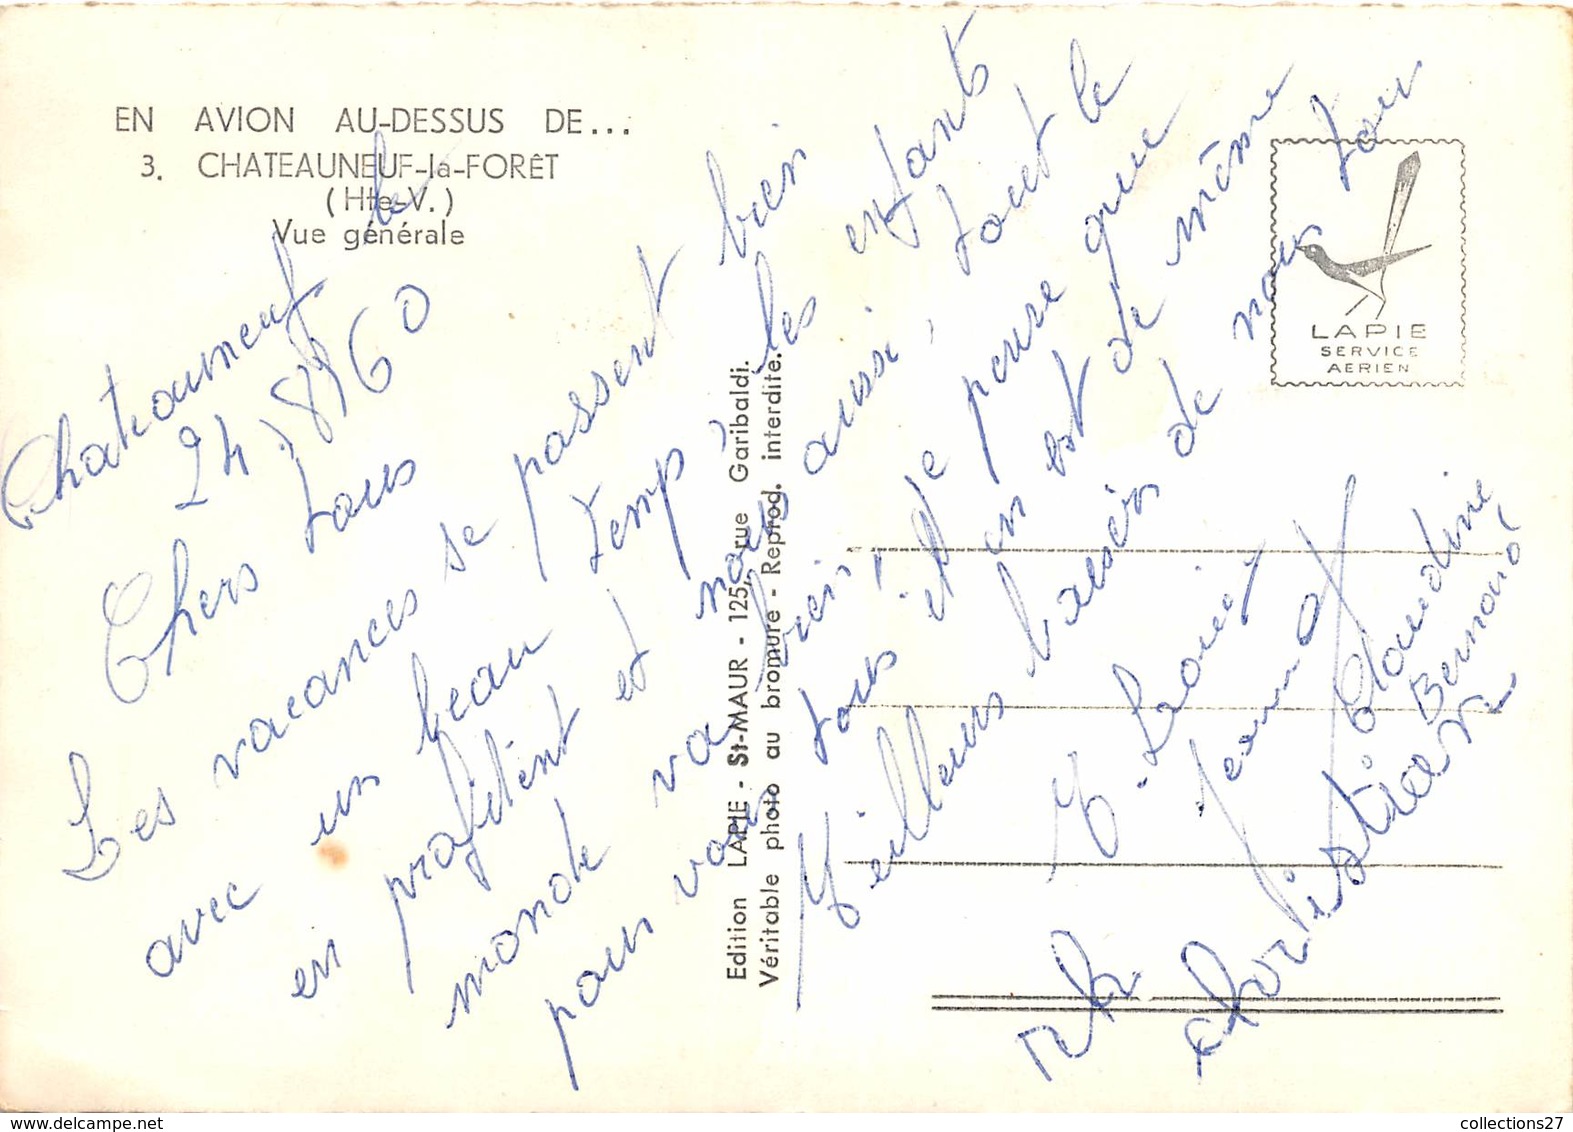 EN AVION AU-DESSUS DE...
3. CHATEAUNEUF-la-FORÊT
(Hte-V.)
Vue générale
LAPIE
SERVICE
AERIEN
Edition LAPIE - St-MAUR - 125, rue Garibaldi.
Véritable photo au bromure - Reprod. interdite.
Chateauneuf le
24/8/60
Chers tous
Les vacances se passent bien
avec un beau temp, les enfants
en profitent et nous aussi, tout le
monde va bien, je pense que
pour vous tous il en est de même
Meilleurs baisers de nous tous
Jeannot
Claudine
Bernard
Christian
collections27